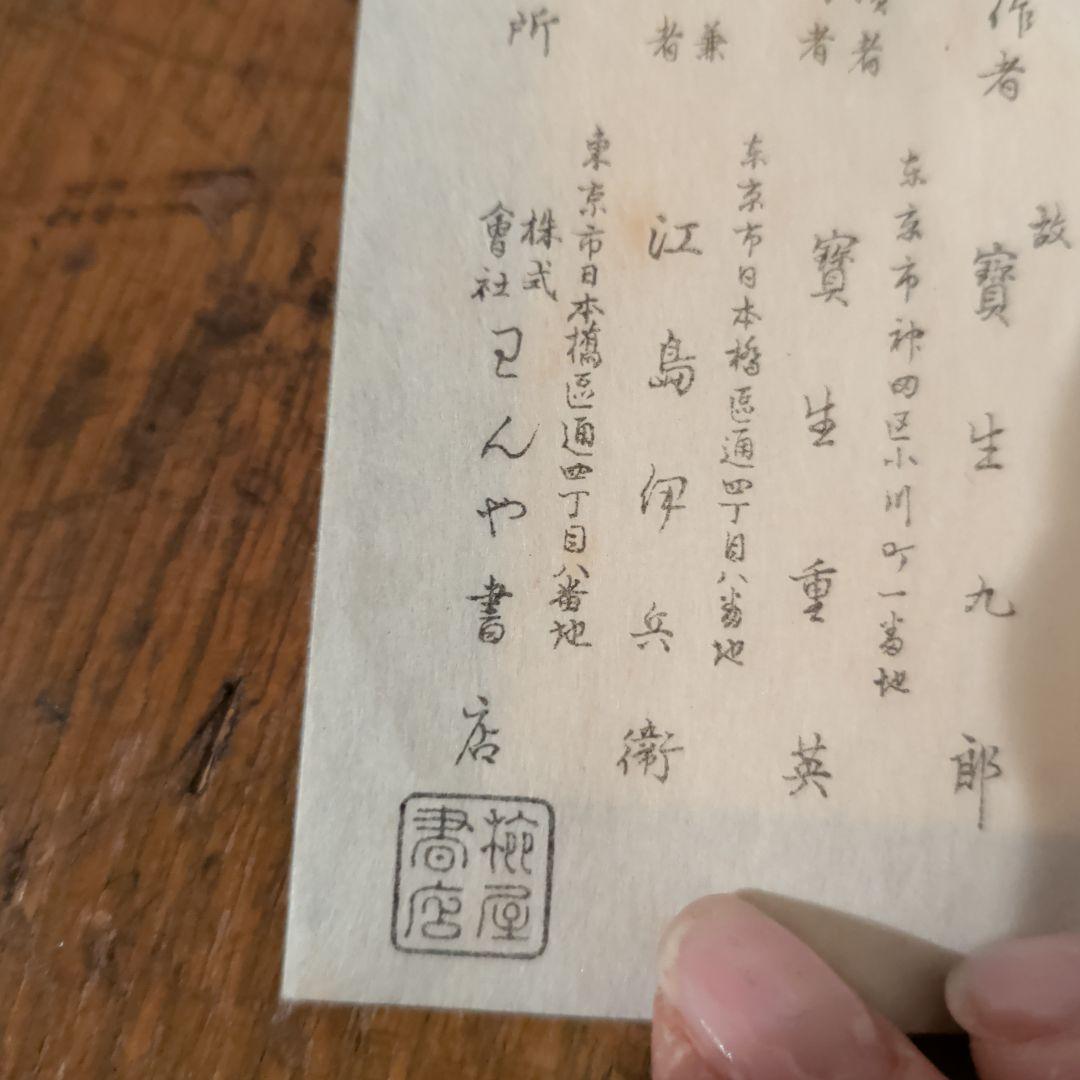 作者
故
寶生九郎
東京市神田区小川町一番地
者
者
寶生重英
東京市日本橋區通四丁目八番地
兼
者
江島伊兵衛
東京市日本橋區通四丁目八番地
所
株式
會社
わんや書店
椀屋
書店